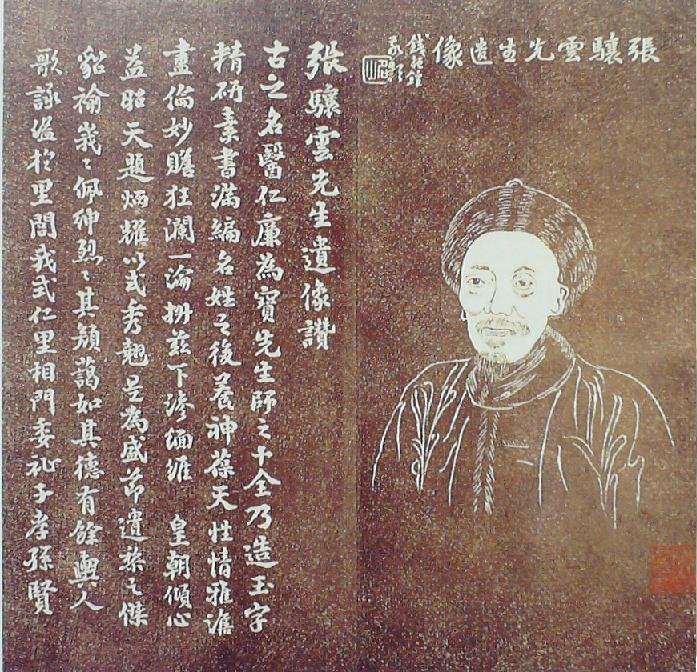 張驤雲先生遺像
張驤雲先生遺像讚
古之名醫仁廉為寶先生師之十全乃造玉字
精研素書滿編名姓之後養神葆天性情雅澹
畫倫妙狂瀾一淪茲下滲緬維 皇朝傾心
益昭天題炳耀以式秀翹是為盛節遺榮之傑
褕峩〻佩紳烈〻其類藹如其德有餘輿人
歌詠溢於里閭我式仁里相門委祉子孝孫賢